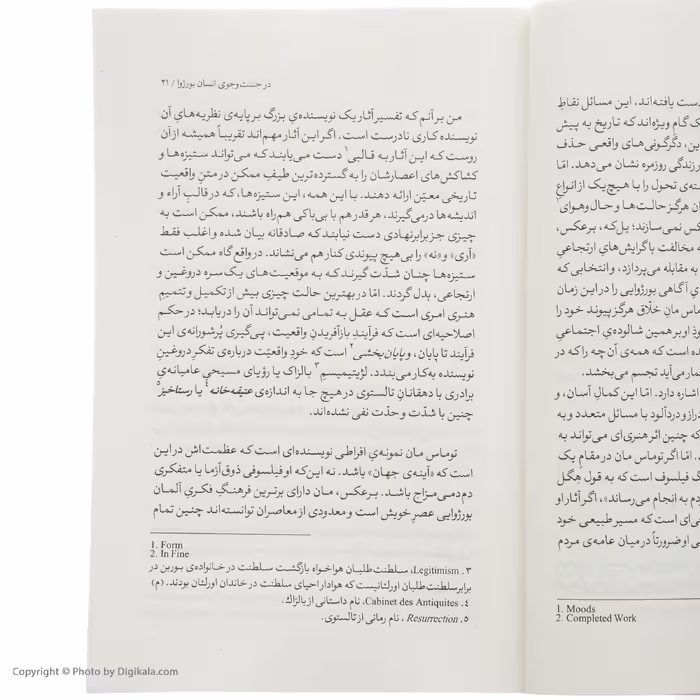 در جست‌وجوی انسان بورژوا / ۲۱
من بر آنم که تفسیر آثار یک نویسنده‌ی بزرگ بر پایه‌ی نظریه‌های آن
نویسنده کاری نادرست است. اگر این آثار مهم‌اند تقریباً همیشه از آن
روست که این آثار به قالبی۱ دست می‌یابند که می‌تواند ستیزه‌ها و
کشاکش‌های اعصارشان را به گسترده‌ترین طیفِ ممکن در متنِ واقعیت
تاریخی معیّن ارائه دهند. با این همه، این ستیزه‌ها، که در قالبِ آراء و
اندیشه‌ها درمی‌گیرند، هر قدر هم با بی‌باکی هم‌راه باشند، ممکن است به
چیزی جز برابرنهادی دست نیابند که صادقانه بیان شده و اغلب فقط
«آری» و «نه» را بی‌هیچ پیوندی کنار هم می‌نشاند. در واقع گاه ممکن است
ستیزه‌ها چنان شدّت گیرند که به موقعیت‌های یک‌سره دروغین و
ارتجاعی، بدل گردند. امّا در بهترین حالت چیزی بیش از تکمیل و تتمیمِ
هنری امری است که عقل به تمامی نمی‌تواند آن را دریابد؛ در حکم
اصلاحیه‌ای است که فرآیندِ بازآفریدنِ واقعیت، پی‌گیری پُرشورانه‌ی این
فرآیند تا پایان، و پایان‌بخشی۲ است که خودِ واقعیّت درباره‌ی تفکرِ دروغینِ
نویسنده به‌کار می‌بندد. لژیتیمیسمِ۳ بالزاک یا رؤیای مسیحیِ عامیانه‌ی
برادری با دهقانانِ تالستوی در هیچ جا به اندازه‌ی عتیقه‌خانه۴ یا رستاخیز۵
چنین با شدّت و حدّت نفی نشده‌اند.
توماس مان نمونه‌ی افراطیِ نویسنده‌ای است که عظمت‌اش در این
است که «آینه‌ی جهان» باشد. نه این‌که او فیلسوفی ذوق‌آزما یا متفکری
دم‌دمی‌مزاج باشد. برعکس، مان دارای برترین فرهنگِ فکریِ آلمان
بورژوایی عصرِ خویش است و معدودی از معاصران توانسته‌اند چنین تمام
1. Form
2. In Fine
۳. Legitimism، سلطنت‌طلبان هواخواه بازگشت سلطنت در خانواده‌ی بوربن در
برابر سلطنت‌طلبان اورلئانیست که هوادار احیای سلطنت در خاندان اورلئان بودند. (م)
۴. Cabinet des Antiquites، نام داستانی از بالزاک.
۵. Resurrection ، نام رمانی از تالستوی.
دست یافته‌اند. این مسائل نقاطِ
ک گامِ ویژه‌اند که تاریخ به پیش
این، دگرگونی‌های واقعی حذف
ر زندگی روزمره نشان می‌دهد. امّا
نه‌ی تحول را با هیچ‌یک از انواعِ
ن هرگز حالت‌ها و حال‌وهوای۱
کس نمی‌سازند؛ بل‌که، برعکس،
ه مخالفت با گرایش‌های ارتجاعیِ
به مقابله می‌پردازد، و انتخابی که
یِ آگاهی بورژوایی را در این زمان
ماس مانِ خلّاق هرگز پیوند خود را
وذ او بر همین شالوده‌ی اجتماعیِ
ده است که همه‌ی آن چه را که در
مار می‌آید تجسم می‌بخشد.
اشاره دارد. امّا این کمالِ آسان، و
دراز و دردآلود با مسائل متعدد و به
که چنین اثر هنری‌ای می‌تواند به
د. امّا اگر توماس مان در مقامِ یک
گ فیلسوف است که به قول هِگِل
دم به انجام می‌رساند»، اگر آثار او
ی‌ای است که مسیر طبیعی خود
ی او ضرورتاً در میان عامه‌ی مردم
1. Moods
2. Completed Work
Copyright © Photo by Digikala.com